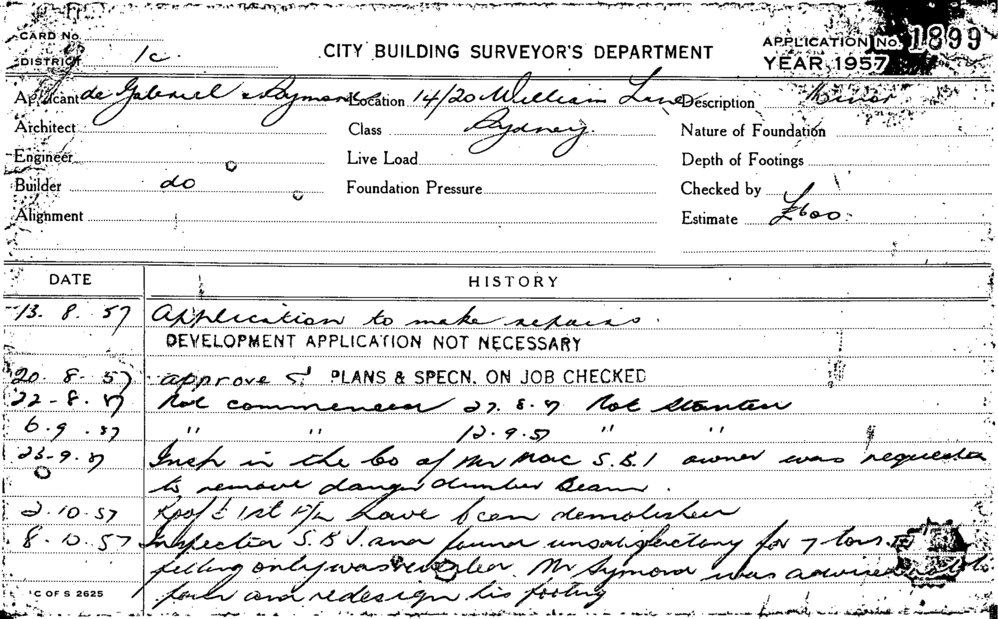 CARD No.
DISTRICT 1c
CITY BUILDING SURVEYOR'S DEPARTMENT
APPLICATION No. 1899
YEAR 1957
Applicant de Gabriel & Symonds Location 14/20 William Lane Description Minor
Architect Class Sydney. Nature of Foundation
Engineer Live Load Depth of Footings
Builder do Foundation Pressure Checked by
Alignment Estimate £600
DATE HISTORY
13. 8. 57 Application to make repairs.
DEVELOPMENT APPLICATION NOT NECESSARY
20. 8. 57 approve PLANS & SPECN. ON JOB CHECKED
22-8. 57 Not commenced 27. 8. 57 Not Started
6. 9. 57 " " 12. 9. 57 " "
23-9. 57 Insp in the Co of Mr Mac S.B.I owner was requested
to remove danger Beam.
2. 10. 57 Roof & 1st have been demolished
8. 10. 57 Inspection S.B.I. and found unsatisfactory for 7 tons
only was Mr Symond was advised to
and redesign his footing
C OF S 2625